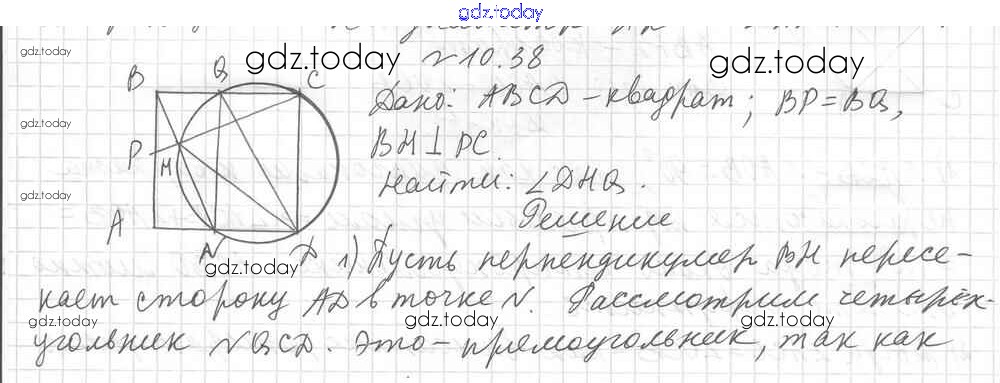 gdz.today
№10.38
B Q C
Дано: ABCD - квадрат; BP = BQ,
P H
BH ⊥ PC.
Найти: ∠DHQ.
A N D
Решение
1) Пусть перпендикуляр BH пересе-
кает сторону AD в точке N. Рассмотрим четырёх-
угольник NQCD. Это - прямоугольник, так как
gdz.today
gdz.today
gdz.today
gdz.today
gdz.today
gdz.today
gdz.today
gdz.today
gdz.today
gdz.today
gdz.today
gdz.today